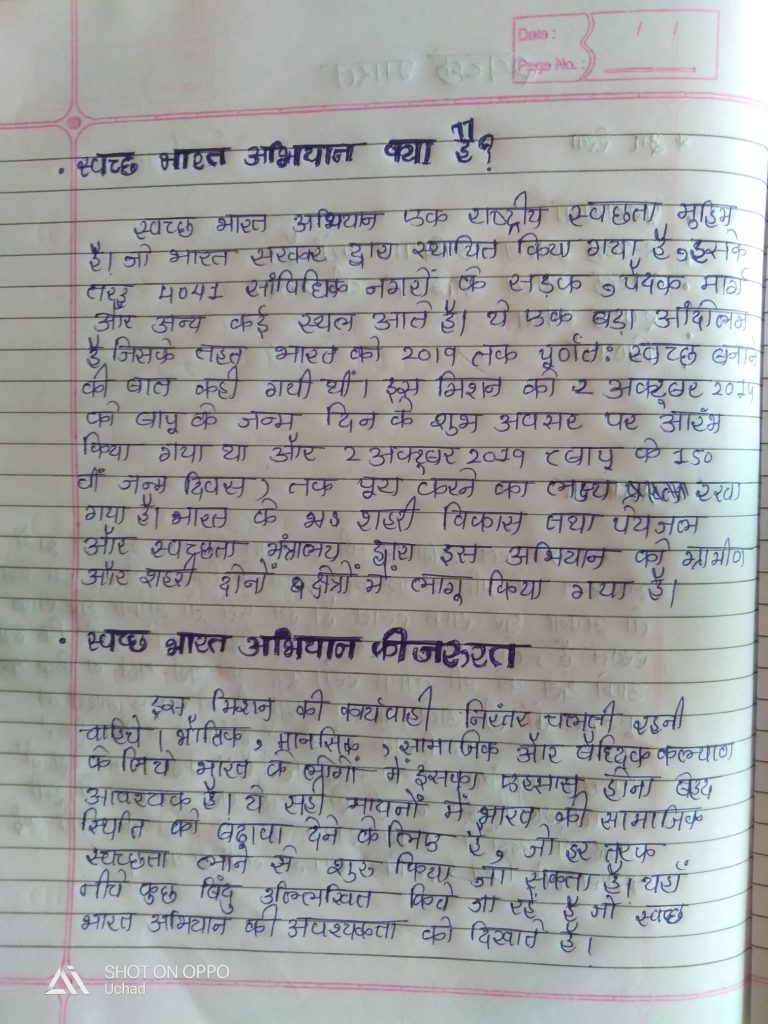 Date : / /
Page No. :
• स्वच्छ भारत अभियान क्या है?
स्वच्छ भारत अभियान एक राष्ट्रीय स्वछता मुहिम
है। जो भारत सरकार द्वारा स्थापित किया गया है, इसके
तरह 4041 सांविधिक नगरों के सड़क, पैदक मार्ग
और अन्य कई स्थल आते है। ये एक बड़ा आंदोलन
है जिसके तहत भारत को 2019 तक पूर्णत: स्वच्छ बनाने
की बात कही गयी थीं। इस मिशन को 2 अक्टूबर 2014
को बापू के जन्म दिन के शुभ अवसर पर आरंभ
किया गया था और 2 अक्टूबर 2019 (बापू के 150
वीं जन्म दिवस) तक पूरा करने का लक्ष्य रखा
गया है। भारत के शहरी विकास तथा पेयजल
और स्वच्छता मंत्रालय द्वारा इस अभियान को ग्रामीण
और शहरी दोनों क्षेत्रों में लागू किया गया है।
• स्वच्छ भारत अभियान की जरुरत
इस मिशन की कार्यवाही निरंतर चलती रहनी
चाहिये। भौतिक, मानसिक, सामाजिक और बौध्दिक कल्याण
के लिये भारत के लोगों में इसका एहसास होना बेहद
आवश्यक है। ये सही मायनों में भारत की सामाजिक
स्थिति को बढ़ावा देने के लिए है, जो हर तरफ
स्वच्छता लाने से शुरु किया जा सकता है। यहाँ
नीचे कुछ बिंदु उल्लिखित किये जा रहें है जो स्वच्छ
भारत अभियान की आवश्यकता को दिखाते है।
SHOT ON OPPO
Uchad